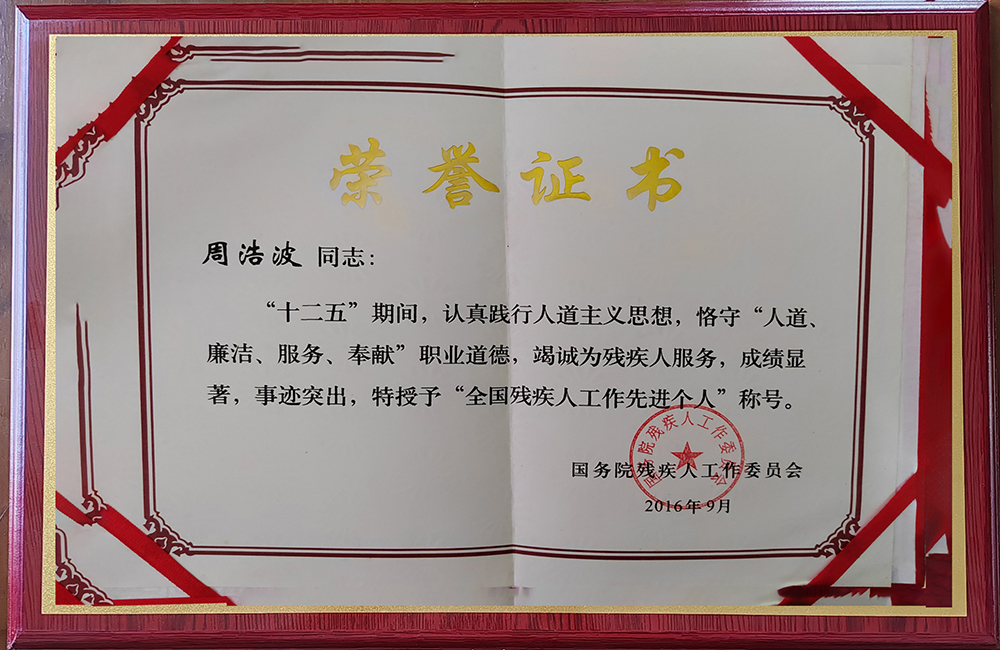 荣誉证书
周浩波 同志：
“十二五”期间，认真践行人道主义思想，恪守“人道、
廉洁、服务、奉献”职业道德，竭诚为残疾人服务，成绩显
著，事迹突出，特授予“全国残疾人工作先进个人”称号。
国务院残疾人工作委员会
国务院残疾人工作委员会
2016年9月